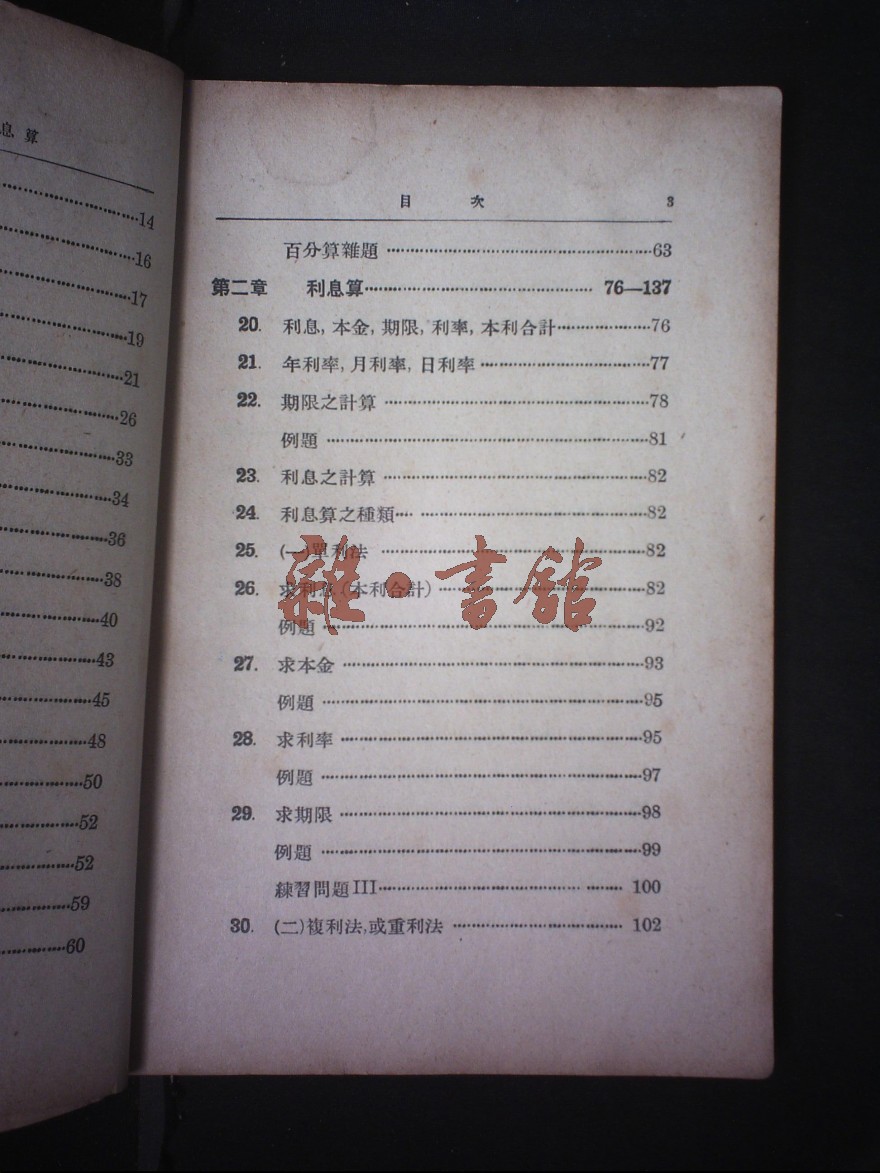 息算
14
16
17
19
21
26
33
34
36
38
40
43
45
48
50
52
52
59
60
目 次 3
百分算雜題 63
第二章 利息算 76—137
20. 利息,本金,期限,利率,本利合計 76
21. 年利率,月利率,日利率 77
22. 期限之計算 78
例題 81
23. 利息之計算 82
24. 利息算之種類 82
25. (一)單利法 82
26. 求利息(本利合計) 82
例題 92
27. 求本金 93
例題 95
28. 求利率 95
例題 97
29. 求期限 98
例題 99
練習問題III 100
30. (二)複利法,或重利法 102
雜·書館